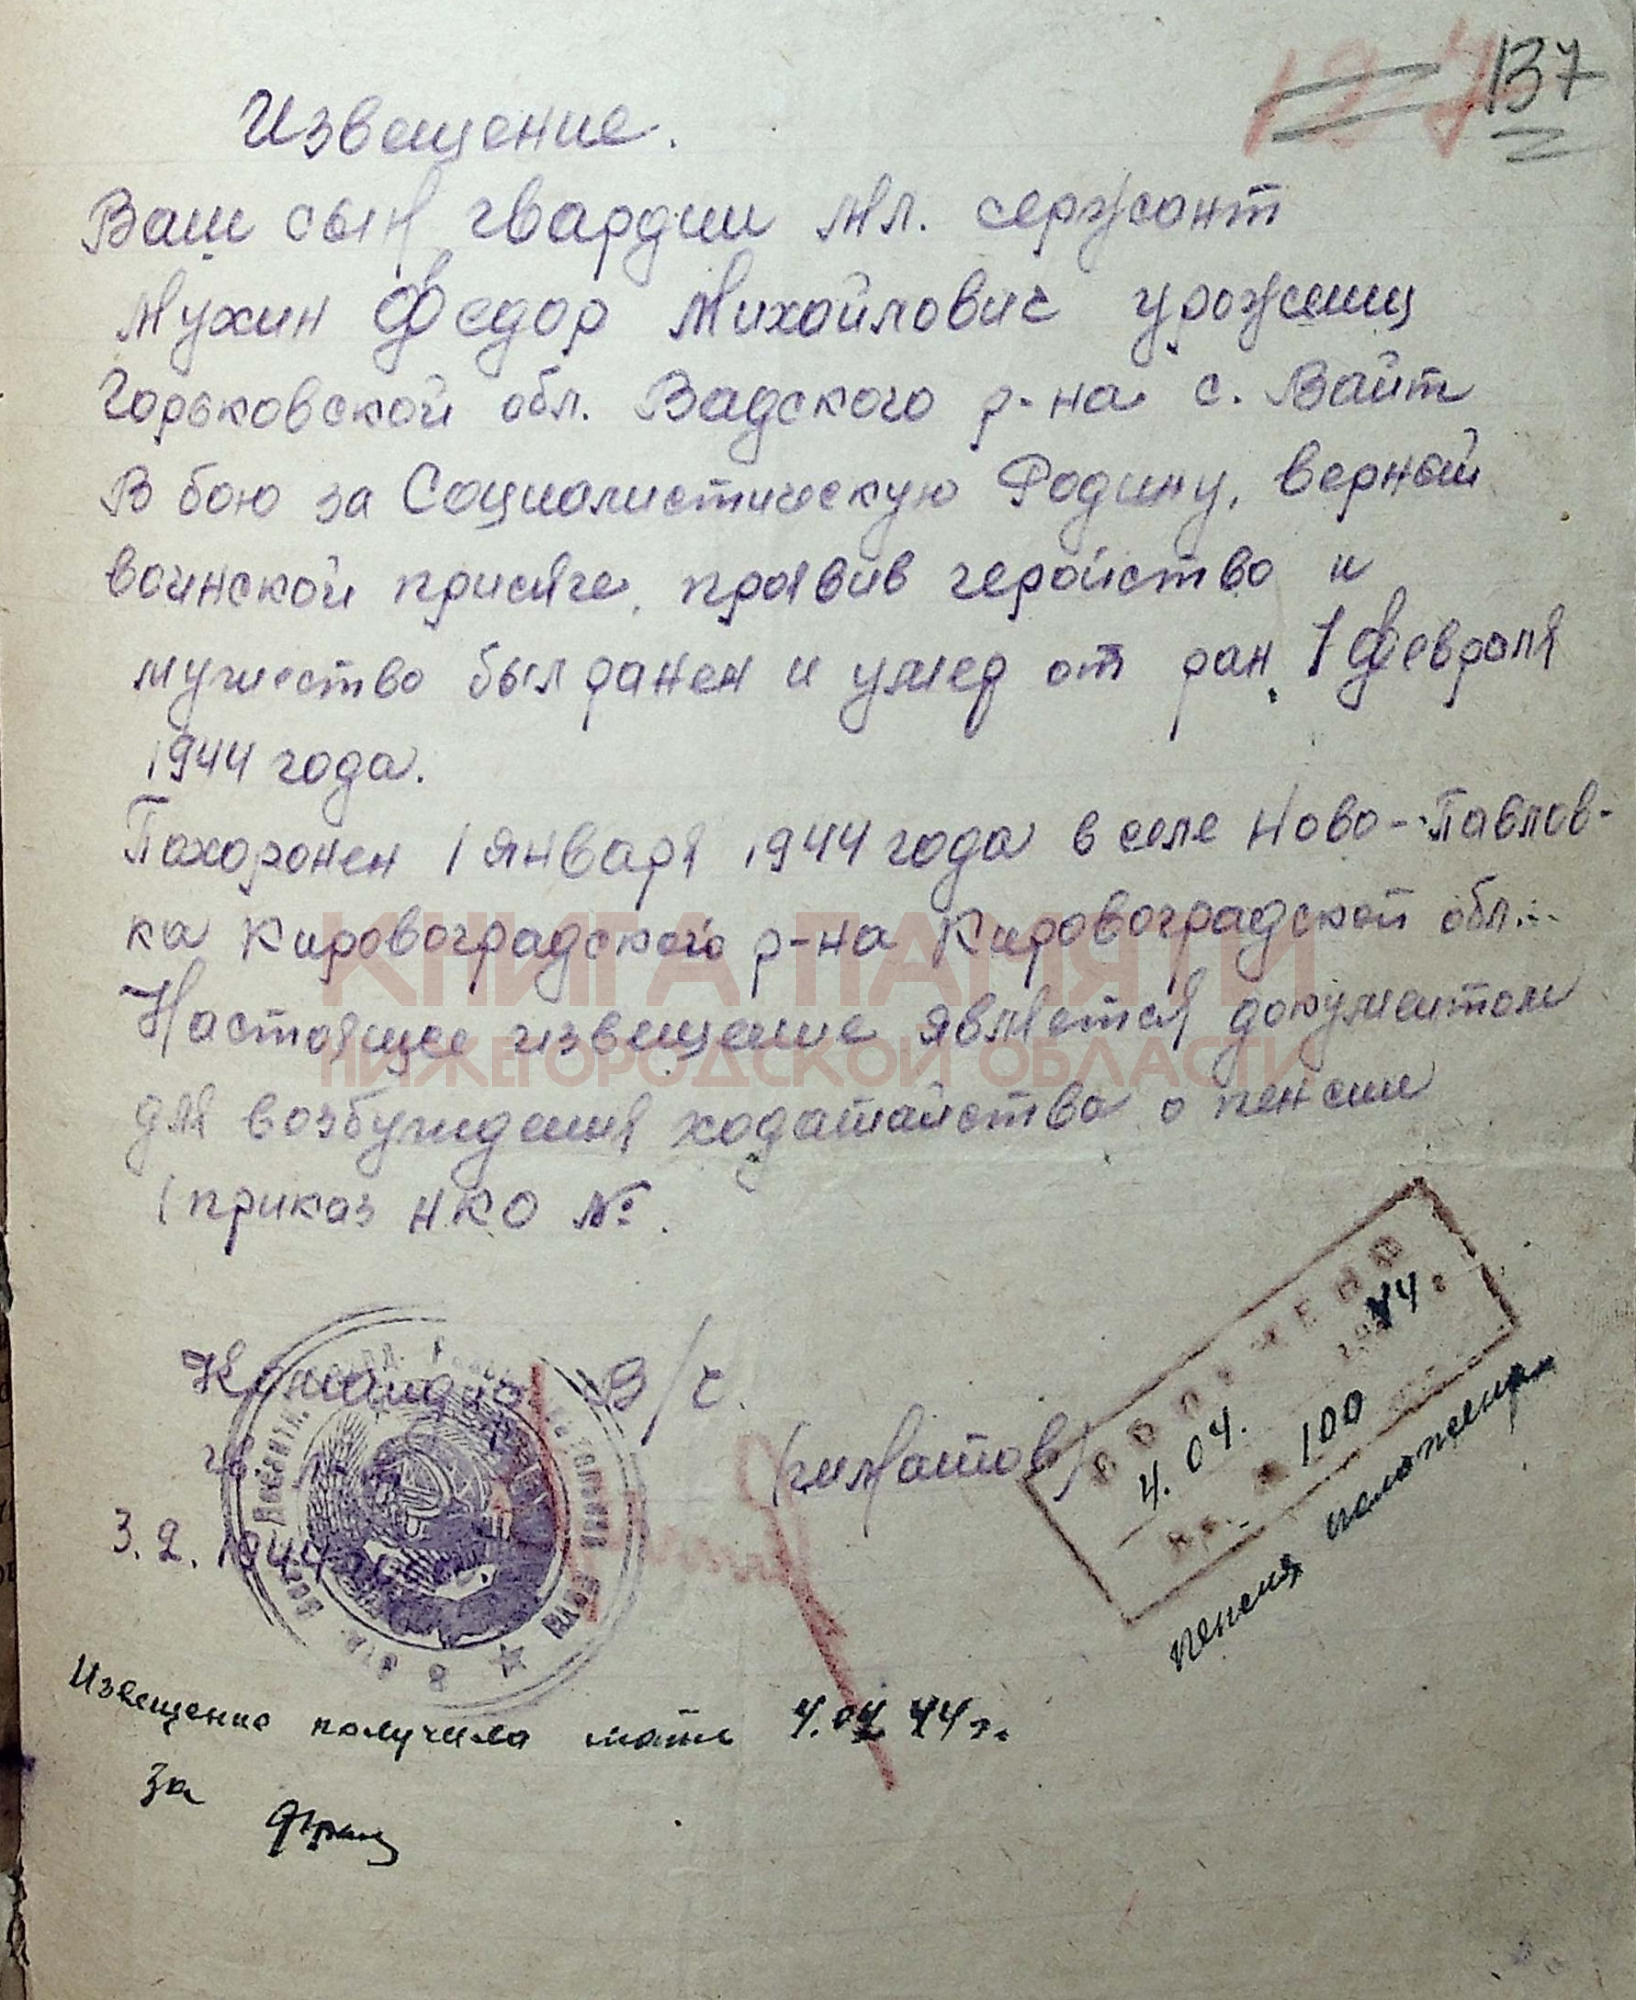 137
Извещение.
Ваш сын гвардии мл. сержант
Мухин Федор Михайлович урожениц
Горьковской обл. Вадского р-на с. Вайт
В бою за Социалистическую Родину, верный
воинской присяге, проявив геройство и
мужество был ранен и умер от ран 1 февраля
1944 года.
Похоронен 1 января 1944 года в селе Ново-Павлов-
ка Кировоградского р-на Кировоградской обл.
КНИГА ПАМЯТИ
Настоящее извещение является документом
НИЖЕГОРОДСКОЙ ОБЛАСТИ
для возбуждения ходатайства о пенсии
(приказ НКО №.
Командир в/ч.
3.2.1944
4.04. 44 г
№ 100
пенсия положена
Извещение получила мать 4.04 44 г.
за